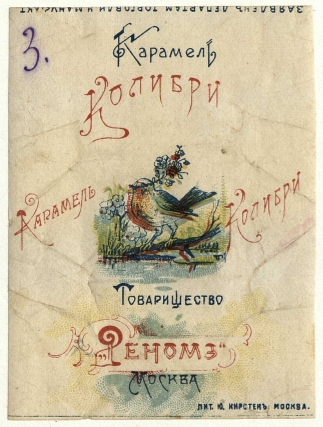 ЗАЯВЛЕНЪ ДЕПАРТАМ. ТОРГОВЛИ И МАНУФАКТ.
3.
Карамель
Колибри
Карамель
Колибри
Товарищество
„Реномэ“
Москва
ЛИТ. Ю. КИРСТЕНЪ МОСКВА.